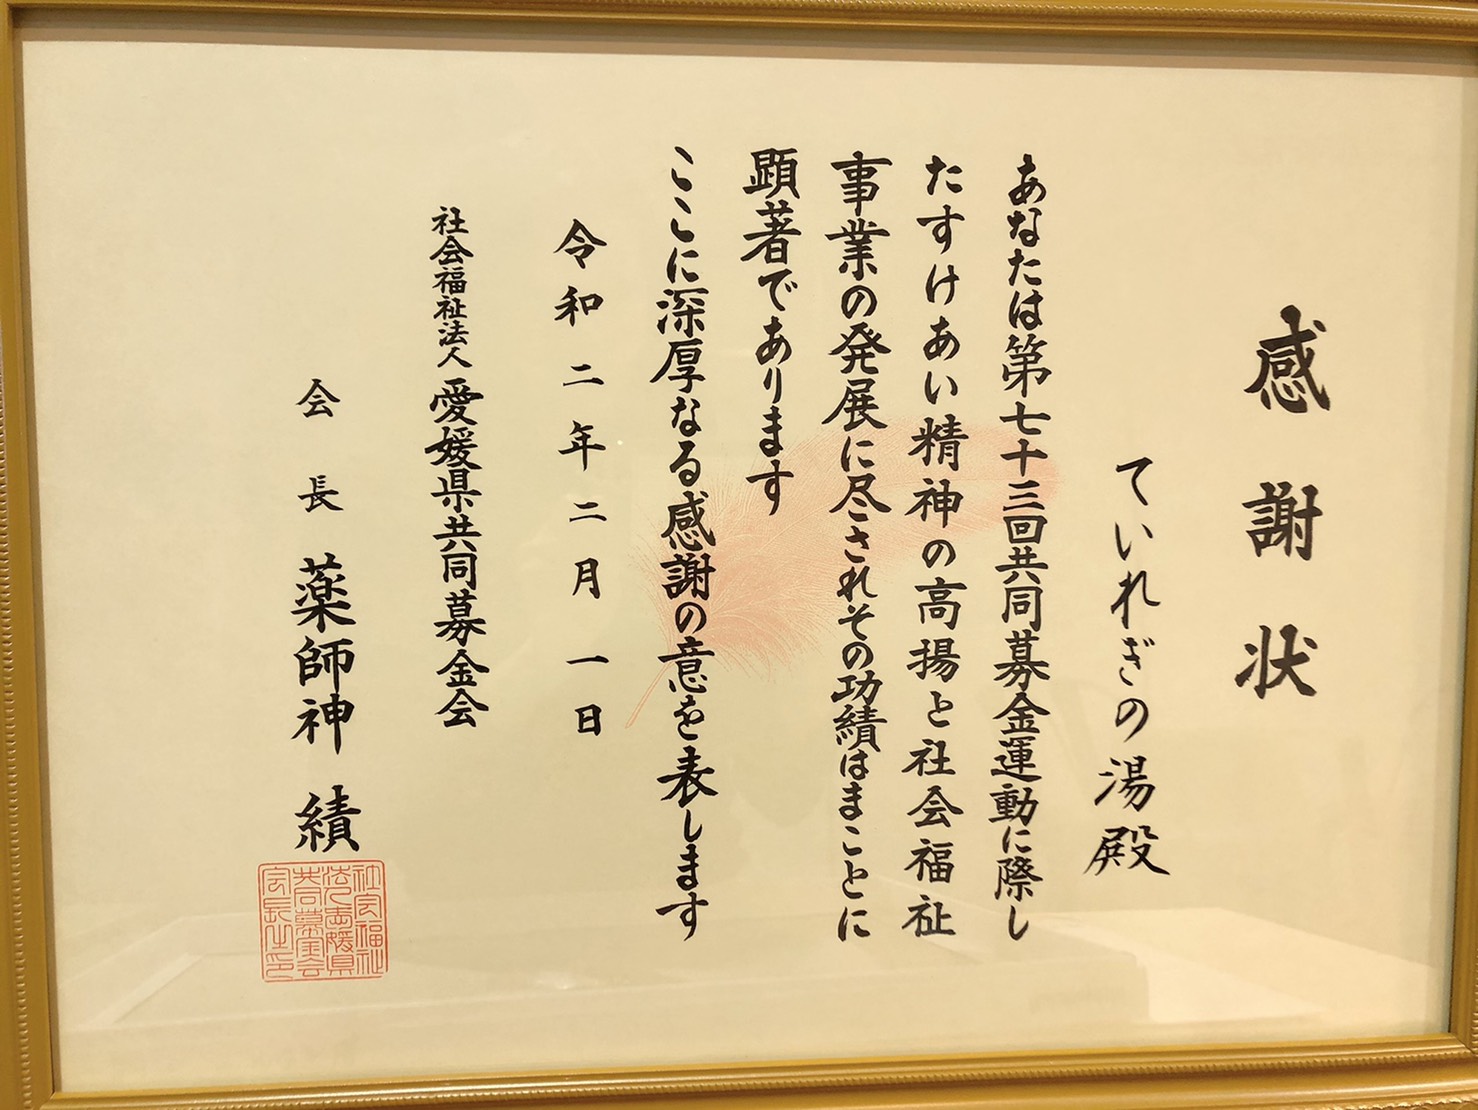 感謝状
ていれぎの湯殿
あなたは第七十三回共同募金運動に際し
たすけあい精神の高揚と社会福祉
事業の発展に尽されその功績はまことに
顕著であります
ここに深厚なる感謝の意を表します
令和二年二月一日
社会福祉法人愛媛県共同募金会
会長薬師神績
社会福祉
法人愛媛県
共同募金会
会長之印